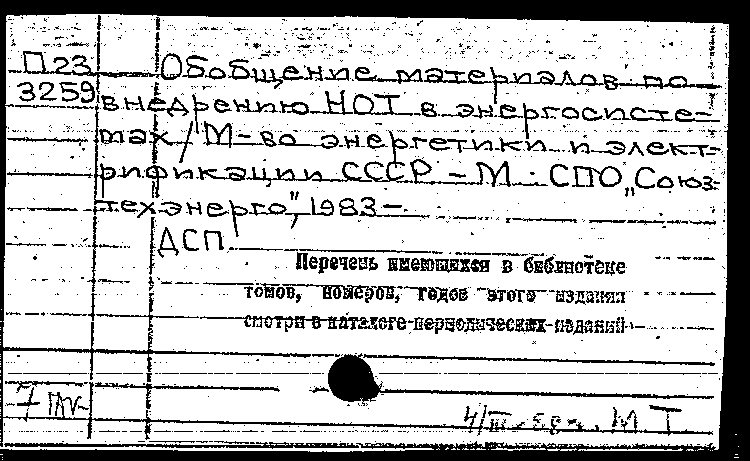 П23 Обобщение материалов по
3259 внедрению НОТ в энергосисте-
мах / М-во энергетики и элект-
рификации СССР – М. СПО „Союз-
техэнерго", 1983 –
ДСП.
Перечень имеющихся в библиотеке
томов, номеров, годов этого издания
смотри в каталоге периодических изданий
7
4/III М. Т